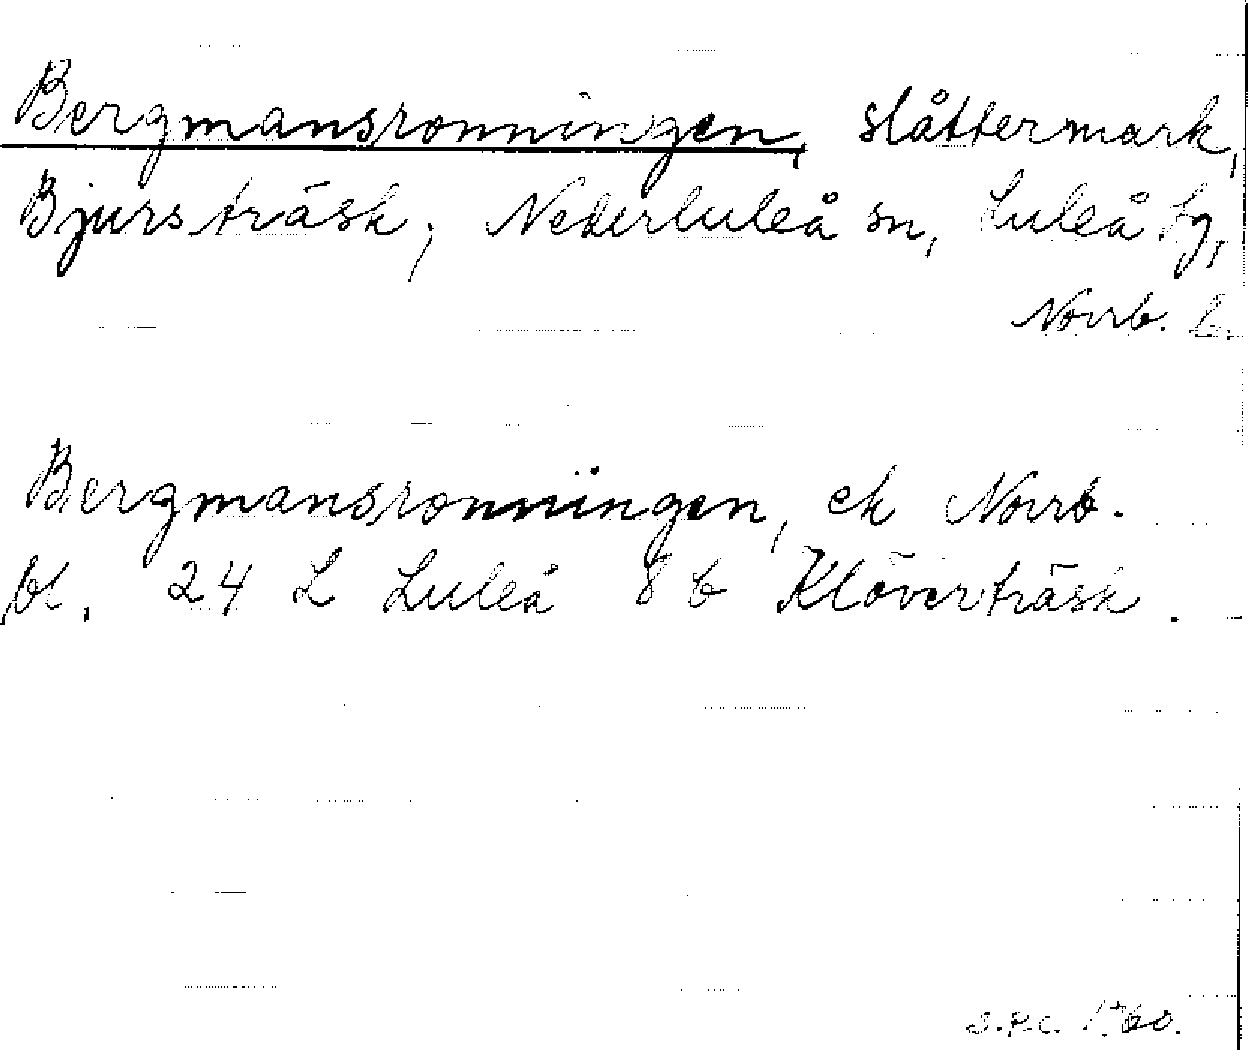 Bergmansronningen, slåttermark,
Bjursträsk, Nederluleå sn, Luleå tg,
Norrb. l.
Bergmansronningen, ek Norrb.
bl. 24 L Luleå 8 b Klöverträsk.